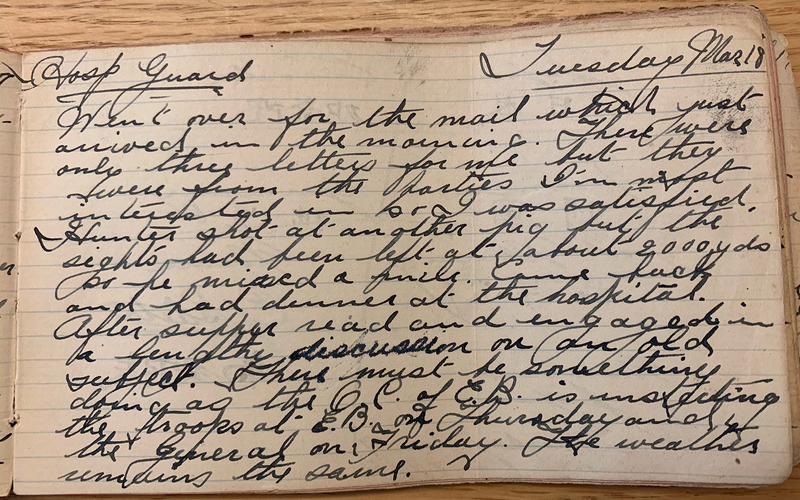 Hosp Guard Tuesday Mar 18
Went over for the mail which just
arrived in the morning. There were
only three letters for me but they
were from the parties I'm most
interested in so I was satisfied.
Hunter shot at another pig but the
sights had been left at about 2000 yds
so he missed a mile. Came back
and had dinner at the hospital.
After supper read and engaged in
a lengthy discussion on an old
subject. There must be something
doing as the O.C. of E.B. is inspecting
the troops at E.B. on Thursday and
the General on Friday. The weather
remains the same.